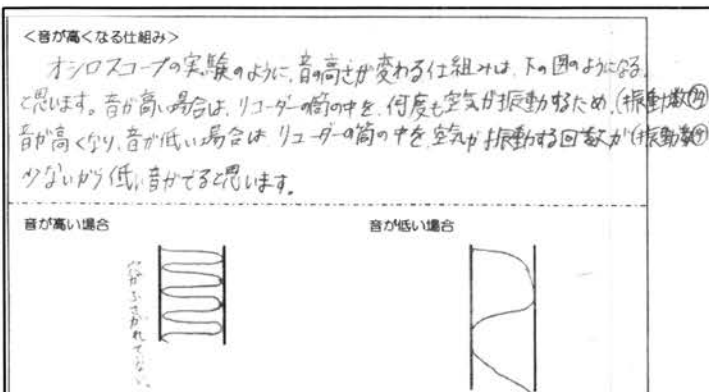 <音が高くなる仕組み>
オシロスコープの実験のように、音の高さが変わる仕組みは、下の図のようになる
と思います。音が高い場合は、リコーダーの筒の中を、何度も空気が振動するため、(振動数㊛
音が高くなり、音が低い場合は、リコーダーの筒の中を、空気が振動する回数が(振動数㊛
少ないから低い音がでると思います。
音が高い場合
音が低い場合
穴がふさがれてない。